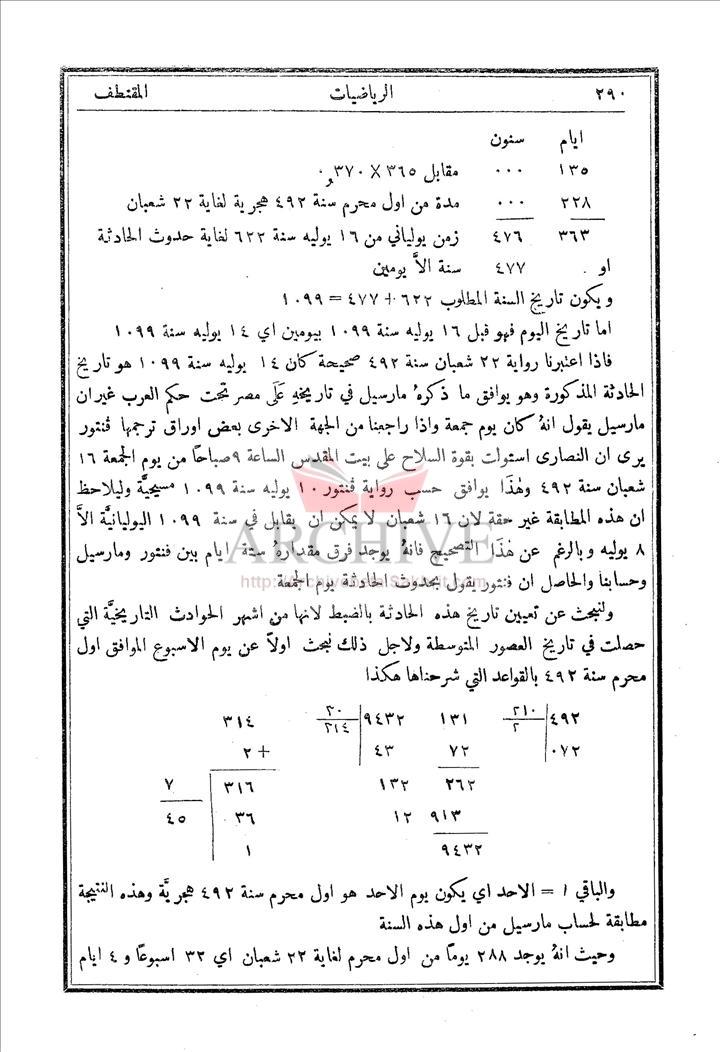 ٢٩٠ الرياضيات المقتطف
ايام سنون
١٣٥ ٠٠٠ مقابل ٣٦٥ × ٠,٣٧٠
٢٢٨ ٠٠٠ مدة من اول محرم سنة ٤٩٢ هجرية لغاية ٢٢ شعبان
٣٦٣ ٤٧٦ زمن يولياني من ١٦ يوليه سنة ٦٢٢ لغاية حدوث الحادثة
او ٤٧٧ سنة الاَّ يومين
ويكون تاريخ السنة المطلوب ٦٢٢ + ٤٧٧ = ١٠٩٩
اما تاريخ اليوم فهو قبل ١٦ يوليه سنة ١٠٩٩ بيومين اي ١٤ يوليه سنة ١٠٩٩
فاذا اعتبرنا رواية ٢٢ شعبان سنة ٤٩٢ صحيحة كان ١٤ يوليه سنة ١٠٩٩ هو تاريخ
الحادثة المذكورة وهو يوافق ما ذكرهُ مارسيل في تاريخهِ عَلَى مصر تحت حكم العرب غير ان
مارسيل يقول انهُ كان يوم جمعة واذا راجعنا من الجهة الاخرى بعض اوراق ترجمها ڤنتور
يرى ان النصارى استولت بقوة السلاح على بيت المقدس الساعة ٩ صباحًا من يوم الجمعة ١٦
شعبان سنة ٤٩٢ وهٰذَا يوافق حسب رواية ڤنتور ١٠ يوليه سنة ١٠٩٩ مسيحيَّة وليلاحظ
ان هذه المطابقة غير حقة لان ١٦ شعبان لا يمكن ان يقابل في سنة ١٠٩٩ اليوليانيَّة الاَّ
ARCHIVE
٨ يوليه وبالرغم عن هٰذَا التصحيح فانهُ يوجد فرق مقدارهُ ستة ايام بين فنتور ومارسيل
وحسابنا والحاصل ان فنتور يقول بحدوث الحادثة يوم الجمعة
ولنبحث عن تعيين تاريخ هذه الحادثة بالضبط لانها من اشهر الحوادث التاريخيَّة التي
حصلت في تاريخ العصور المتوسطة ولاجل ذلك نبحث اولاً عن يوم الاسبوع الموافق اول
محرم سنة ٤٩٢ بالقواعد التي شرحناها هكذا
٤٩٢ ٢١٠ ١٣١ ٩٤٣٢ ٣٠ ٣١٤
٠٧٢ ٢ ٧٢ ٤٣ ٣١٤ + ٢
٢٦٢ ١٣٢ ٣١٦ ٧
٩١٣ ١٢ ٣٦ ٤٥
٩٤٣٢ ١
والباقي ١ = الاحد اي يكون يوم الاحد هو اول محرم سنة ٤٩٢ هجريَّة وهذه النتيجة
مطابقة لحساب مارسيل من اول هذه السنة
وحيث انهُ يوجد ٢٨٨ يومًا من اول محرم لغاية ٢٢ شعبان اي ٣٢ اسبوعًا و ٤ ايام